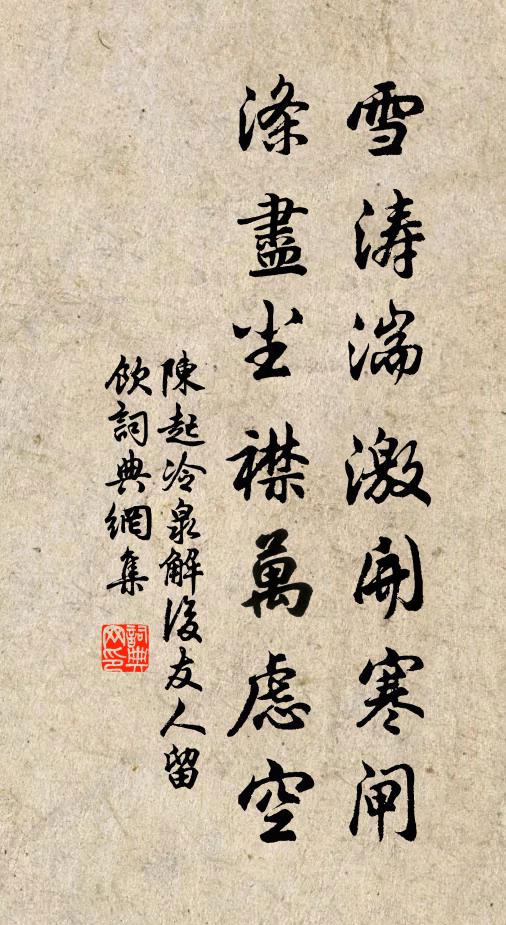 雪涛湍激開寒閘
滌盡尘襟萬慮空
陳起冷泉解後友人留
飲詞典網集
詞典网印